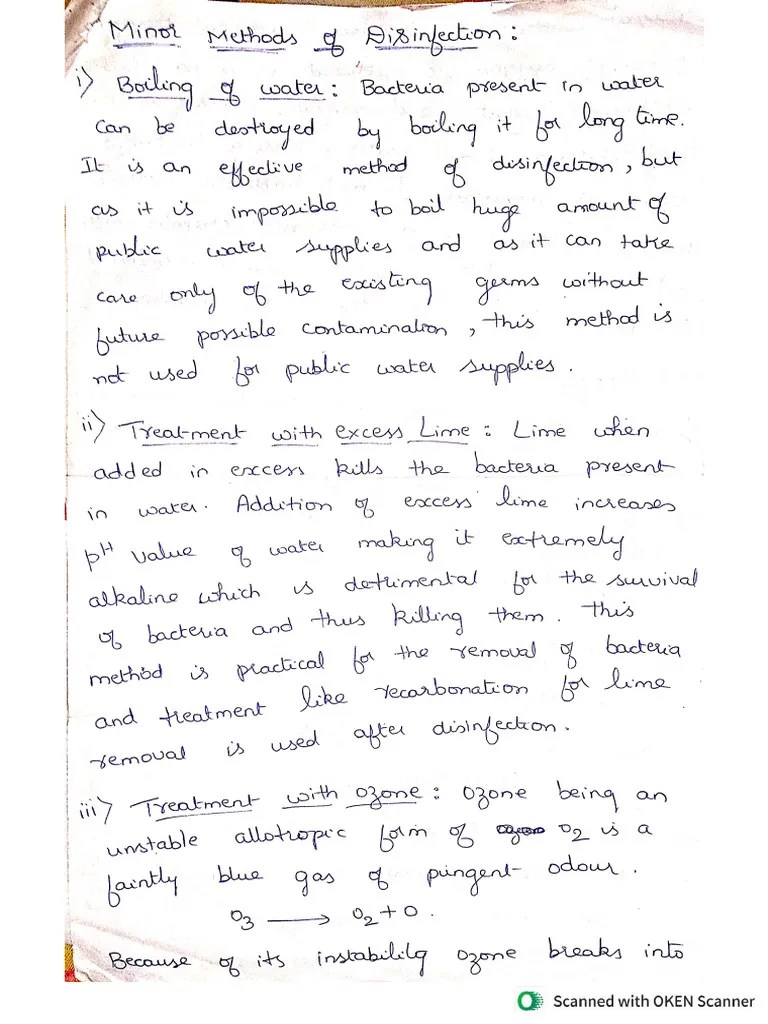 Minor Methods of Disinfection:
i) Boiling of water: Bacteria present in water
can be destroyed by boiling it for long time.
It is an effective method of disinfection, but
as it is impossible to boil huge amount of
public water supplies and as it can take
care only of the existing germs without
future possible contamination, this method is
not used for public water supplies.
ii) Treatment with excess Lime: Lime when
added in excess kills the bacteria present
in water. Addition of excess lime increases
pH value of water making it extremely
alkaline which is detrimental for the survival
of bacteria and thus killing them. This
method is practical for the removal of bacteria
and treatment like recarbonation for lime
removal is used after disinfection.
iii) Treatment with ozone: Ozone being an
unstable allotropic form of O2 is a
faintly blue gas of pungent odour.
O3 → O2 + O.
Because of its instability ozone breaks into
Scanned with OKEN Scanner